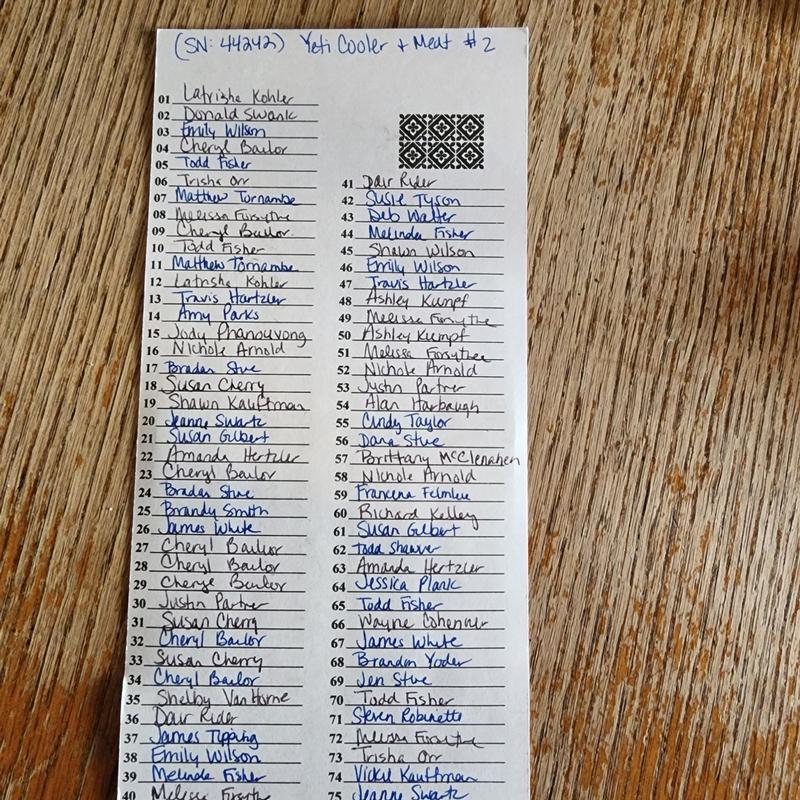 (SN: 44242) Yeti Cooler + Meat #2
01 Latrisha Kohler
02 Donald Swank
03 Emily Wilson
04 Cheryl Bailor
05 Todd Fisher
06 Trisha Orr
07 Matthew Tornambe
08 Melissa Forsythe
09 Cheryl Bailor
10 Todd Fisher
11 Matthew Tornambe
12 Latrisha Kohler
13 Travis Hartzler
14 Amy Parks
15 Jody Phanouvong
16 Nichole Arnold
17 Bradan Stue
18 Susan Cherry
19 Shawn Kauffman
20 Jeanne Swartz
21 Susan Gilbert
22 Amanda Hertzler
23 Cheryl Bailor
24 Bradan Stue
25 Brandy Smith
26 James White
27 Cheryl Bailor
28 Cheryl Bailor
29 Cheryl Bailor
30 Justin Partner
31 Susan Cherry
32 Cheryl Bailor
33 Susan Cherry
34 Cheryl Bailor
35 Shelby VanHorne
36 Dair Rider
37 James Tipping
38 Emily Wilson
39 Melinda Fisher
40 Melissa Forsythe
41 Dair Rider
42 Susie Tyson
43 Deb Walter
44 Melinda Fisher
45 Shawn Wilson
46 Emily Wilson
47 Travis Hartzler
48 Ashley Kumpf
49 Melissa Forsythe
50 Ashley Kumpf
51 Melissa Forsythe
52 Nichole Arnold
53 Justin Partner
54 Alan Harbaugh
55 Cindy Taylor
56 Dana Stue
57 Brittany McClenahen
58 Nichole Arnold
59 Francene
60 Richard Kelley
61 Susan Gilbert
62 Todd Shawver
63 Amanda Hertzler
64 Jessica Plank
65 Todd Fisher
66 Wayne
67 James White
68 Brandon Yoder
69 Jen Stue
70 Todd Fisher
71 Steven Robinette
72 Melissa Forsythe
73 Trisha Orr
74 Vickie Kauffman
75 Jeanne Swartz